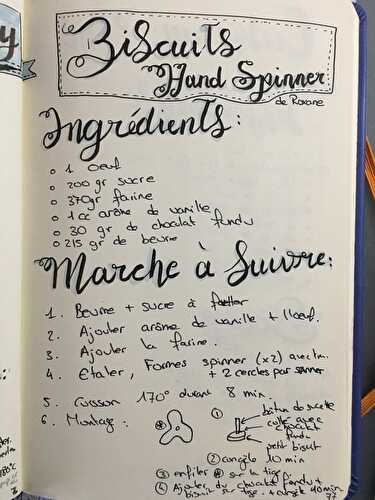 Biscuits
Hand Spinner
de Roxane
Ingrédients :
o 1 oeuf
o 200 gr sucre
o 370gr farine
o 1 cc arôme de vanille
o 30 gr de chocolat fondu
o 215 gr de beurre
Marche à Suivre :
1. Beurre + sucre à
2. Ajouter arôme de vanille + l'oeuf.
3. Ajouter la farine.
4. Etaler, Formes spinner (x2) avec
+ 2 cercles par spinner
5. Cuisson 170° durant 8 min.
6. Montage :
① bâton de sucette
collé avec
chocolat
fondu
petit biscuit
② congèle 10 min
③ enfiler sur la tige
④ Ajouter du chocolat fondu +
biscuit sur tige + 10 min